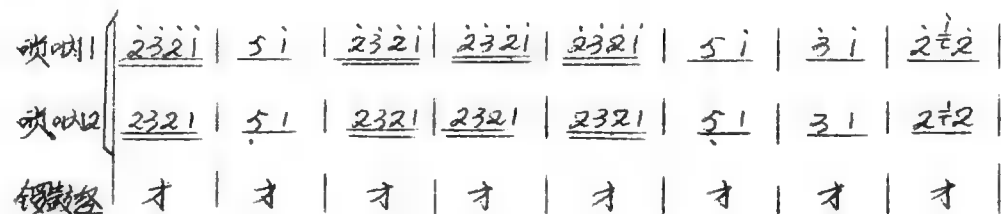 唢呐1 2̇3̇2̇1̇ | 5 1̇ | 2̇3̇2̇1̇ | 2̇3̇2̇1̇ | 2̇3̇2̇1̇ | 5 1̇ | 3̇ 1̇ | 2̇ 1̇ 2̇ |
唢呐2 2321 | 5̣ 1 | 2321 | 2321 | 2321 | 5̣ 1 | 3 1 | 2 1 2 |
锣鼓经 | 才 | 才 | 才 | 才 | 才 | 才 | 才 | 才 |